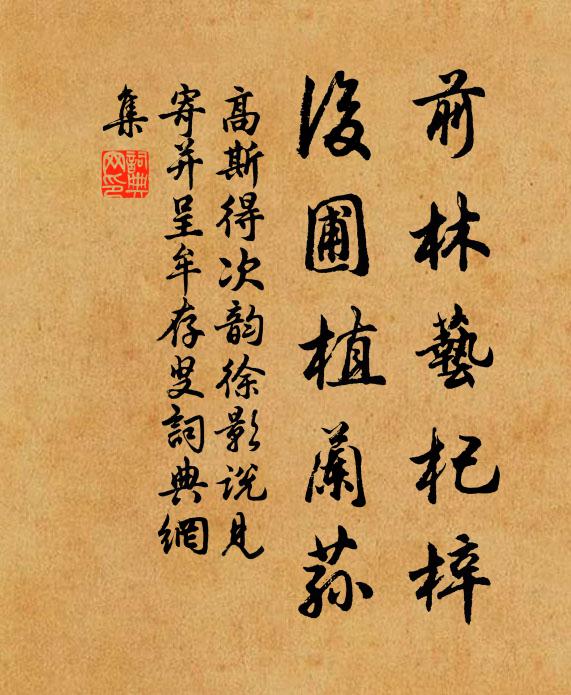 前林藝杞梓
後圃植蘭蓀
高斯得次韵徐影说見
寄并呈牟存叟詞典網
集
詞典
网印